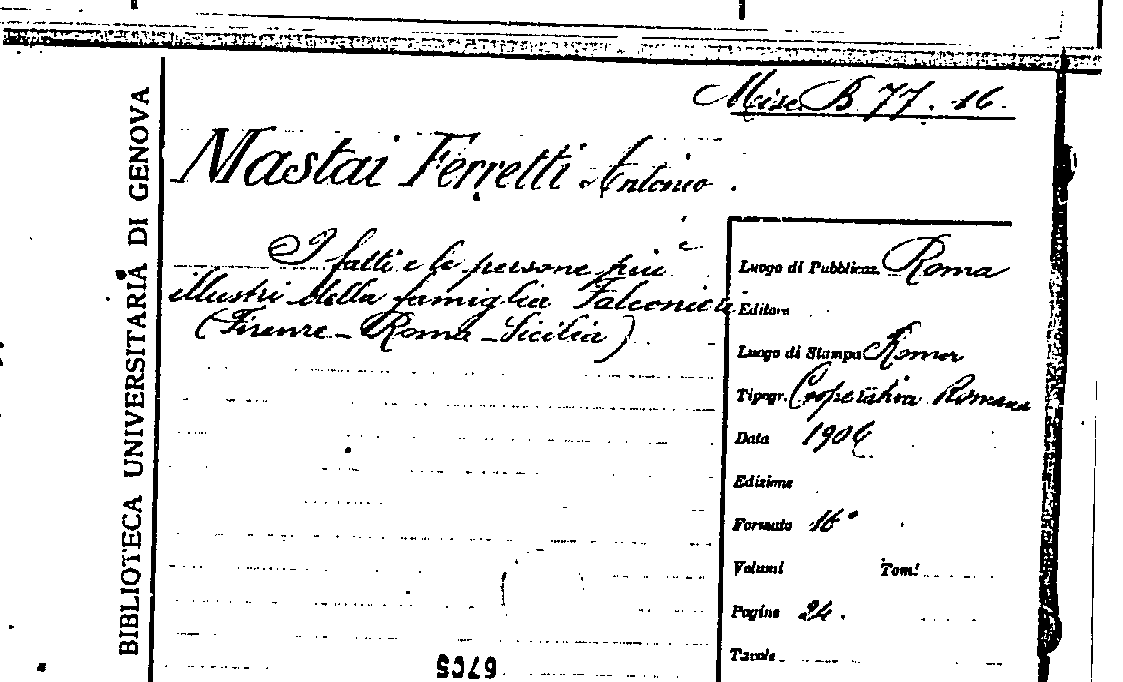 Misc. B 77. 16.
Mastai Ferretti Antonio.
I fatti e le persone più
illustri della famiglia Falconieri
(Firenze - Roma - Sicilia)
BIBLIOTECA UNIVERSITARIA DI GENOVA
Luogo di Pubblicaz. Roma
Editore
Luogo di Stampa Roma
Tipogr. Cooperativa Romana
Data
Edizione
Formato 16°
Volumi Tomi
Pagine 24.
Tavole